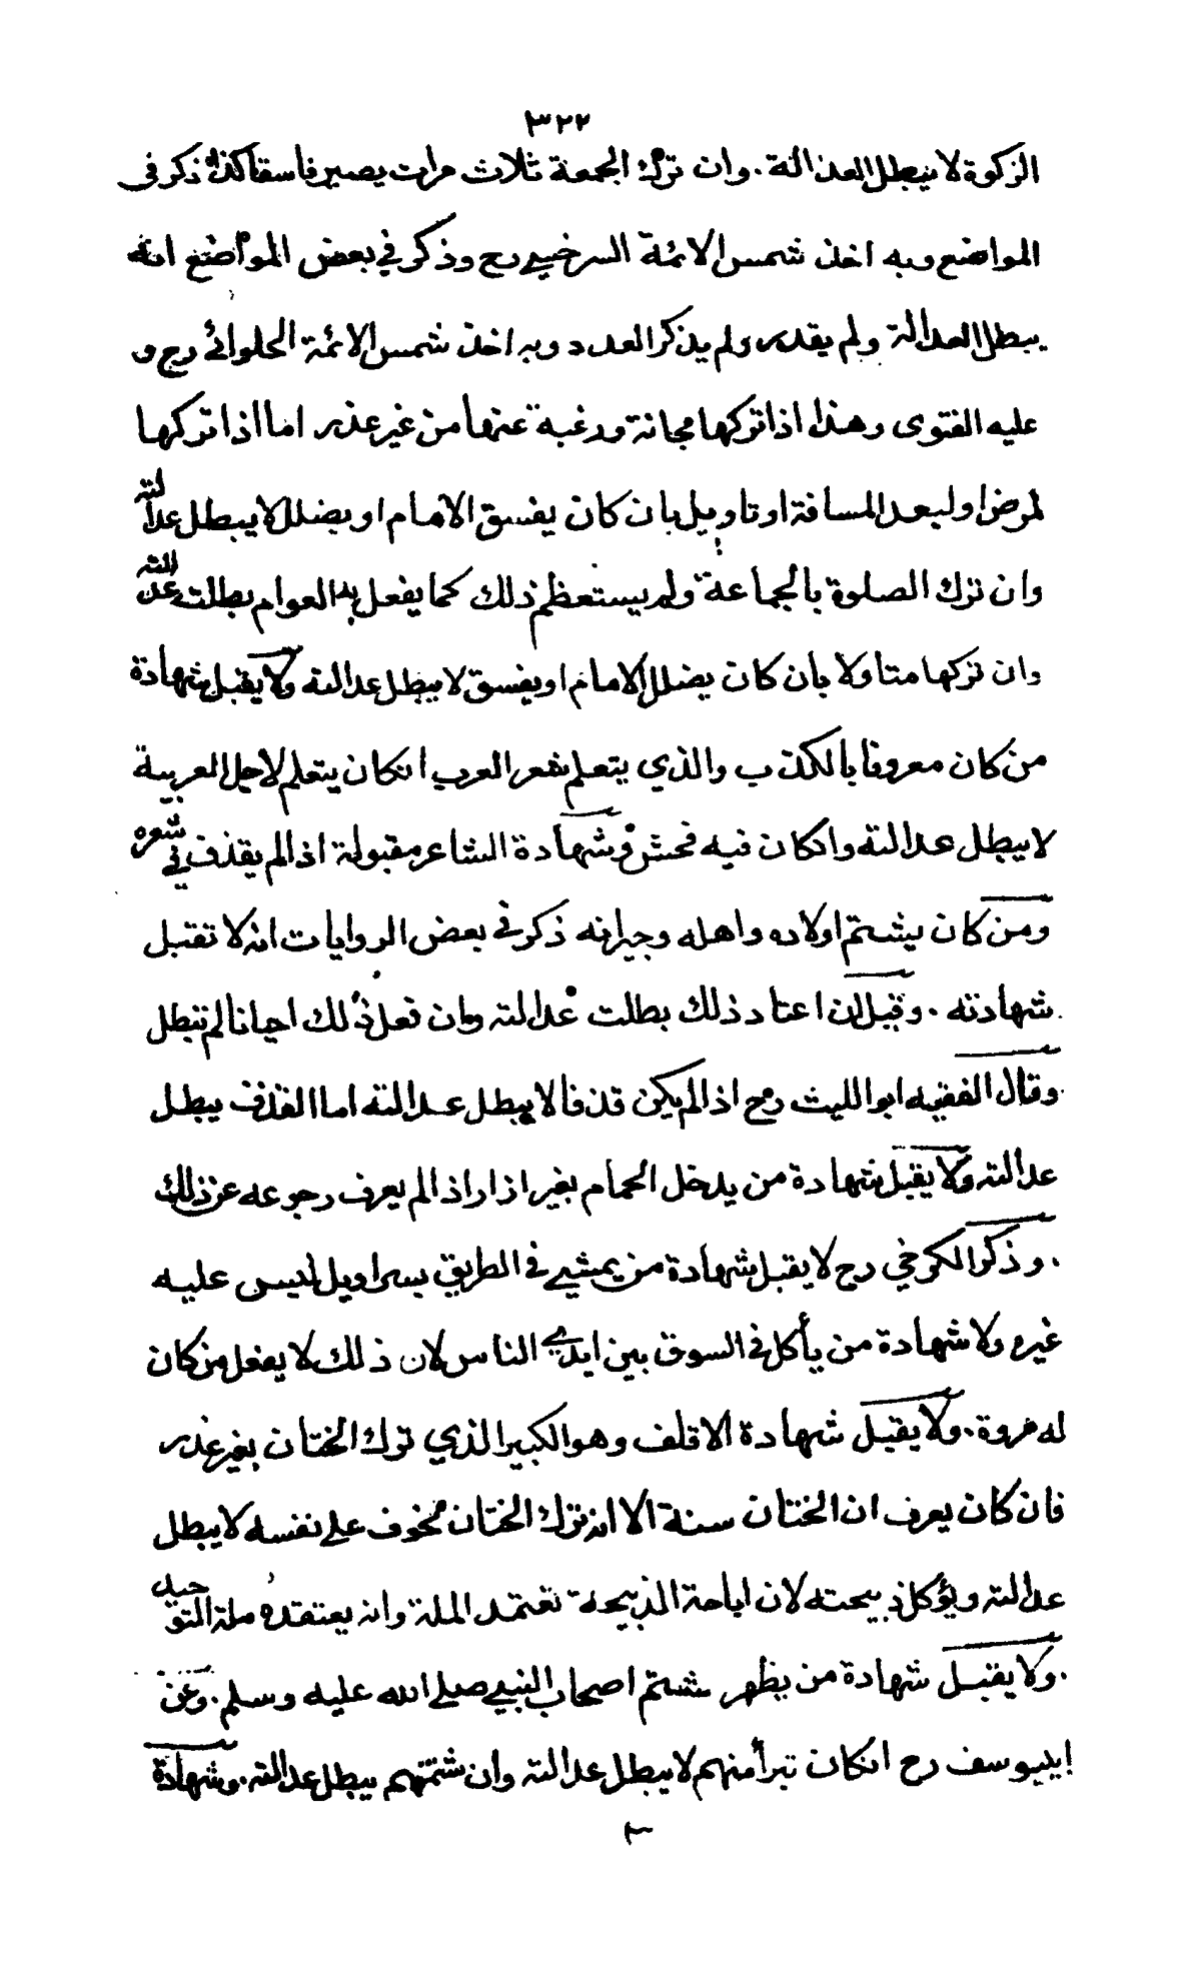 ٣٢٢
الزكوة لا يبطل العدالة . وان ترك الجمعة ثلاث مرات يصير فاسقا كذا ذكر فى
المواضع وبه اخذ شمس الائمة السرخسي رح وذكر في بعض المواضع انه
يبطل العدالة ولم يقدر ولم يذكر العدد وبه اخذ شمس الائمة الحلوائي رح و
عليه الفتوى وهذا اذا تركها مجانة ورغبة عنها من غير عذر اما اذا تركها
لمرض او لبعد المسافة او تاويل بان كان يفسق الامام او يضلل لا يبطل عدالته
وان ترك الصلوة بالجماعة ولم يستعظم ذلك كما يفعل به العوام بطلت عدالته
وان تركها متأولا بأن كان يضلل الامام او يفسق لا يبطل عدالته ولا يقبل شهادة
من كان معروفا بالكذب والذي يتعلم شعر العرب انكان يتعلم لاجل العربية
لا يبطل عدالته وانكان فيه فحش وشهادة الشاعر مقبولة اذا لم يقذف في شعره
ومن كان يشتم اولاده واهله وجيرانه ذكر في بعض الروايات انه لا تقبل
شهادته . وقيل ان اعتاد ذلك بطلت عدالته وان فعل ذلك احيانا لم تبطل
وقال الفقيه ابو الليث رح اذا لم يكن قذفا لا يبطل عدالته اما القذف يبطل
عدالته ولا يقبل شهادة من يدخل الحمام بغير ازار اذا لم يعرف رجوعه عن ذلك
. وذكر الكرخي رح لا يقبل شهادة من يمشي في الطريق بسراويل ليس عليه
غيره ولا شهادة من يأكل في السوق بين ايدي الناس لان ذلك لا يفعل من كان
له مروة . ولا يقبل شهادة الاقلف وهو الكبير الذي ترك الختان بغير عذر
فان كان يعرف ان الختان سنة الا انه ترك الختان لخوف على نفسه لا يبطل
عدالته ويؤكل ذبيحته لان اباحة الذبيحة تعتمد الملة وانه يعتقده ملة التوحيد
. ولا يقبل شهادة من يظهر شتم اصحاب النبي صلى الله عليه وسلم . وعن
ابي يوسف رح انكان تبرأ منهم لا يبطل عدالته وان شتمهم يبطل عدالته . وشهادة